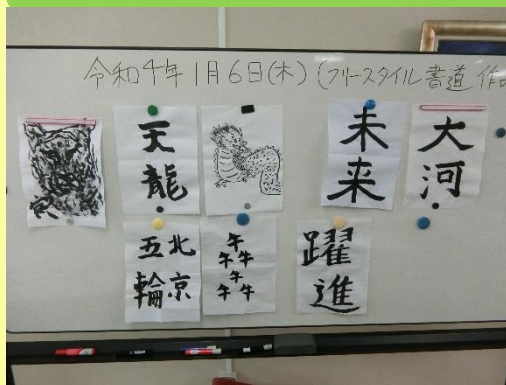 令和4年1月6日(木)(フリースタイル書道 作
天龍
未来
大河
北京
五輪
躍進